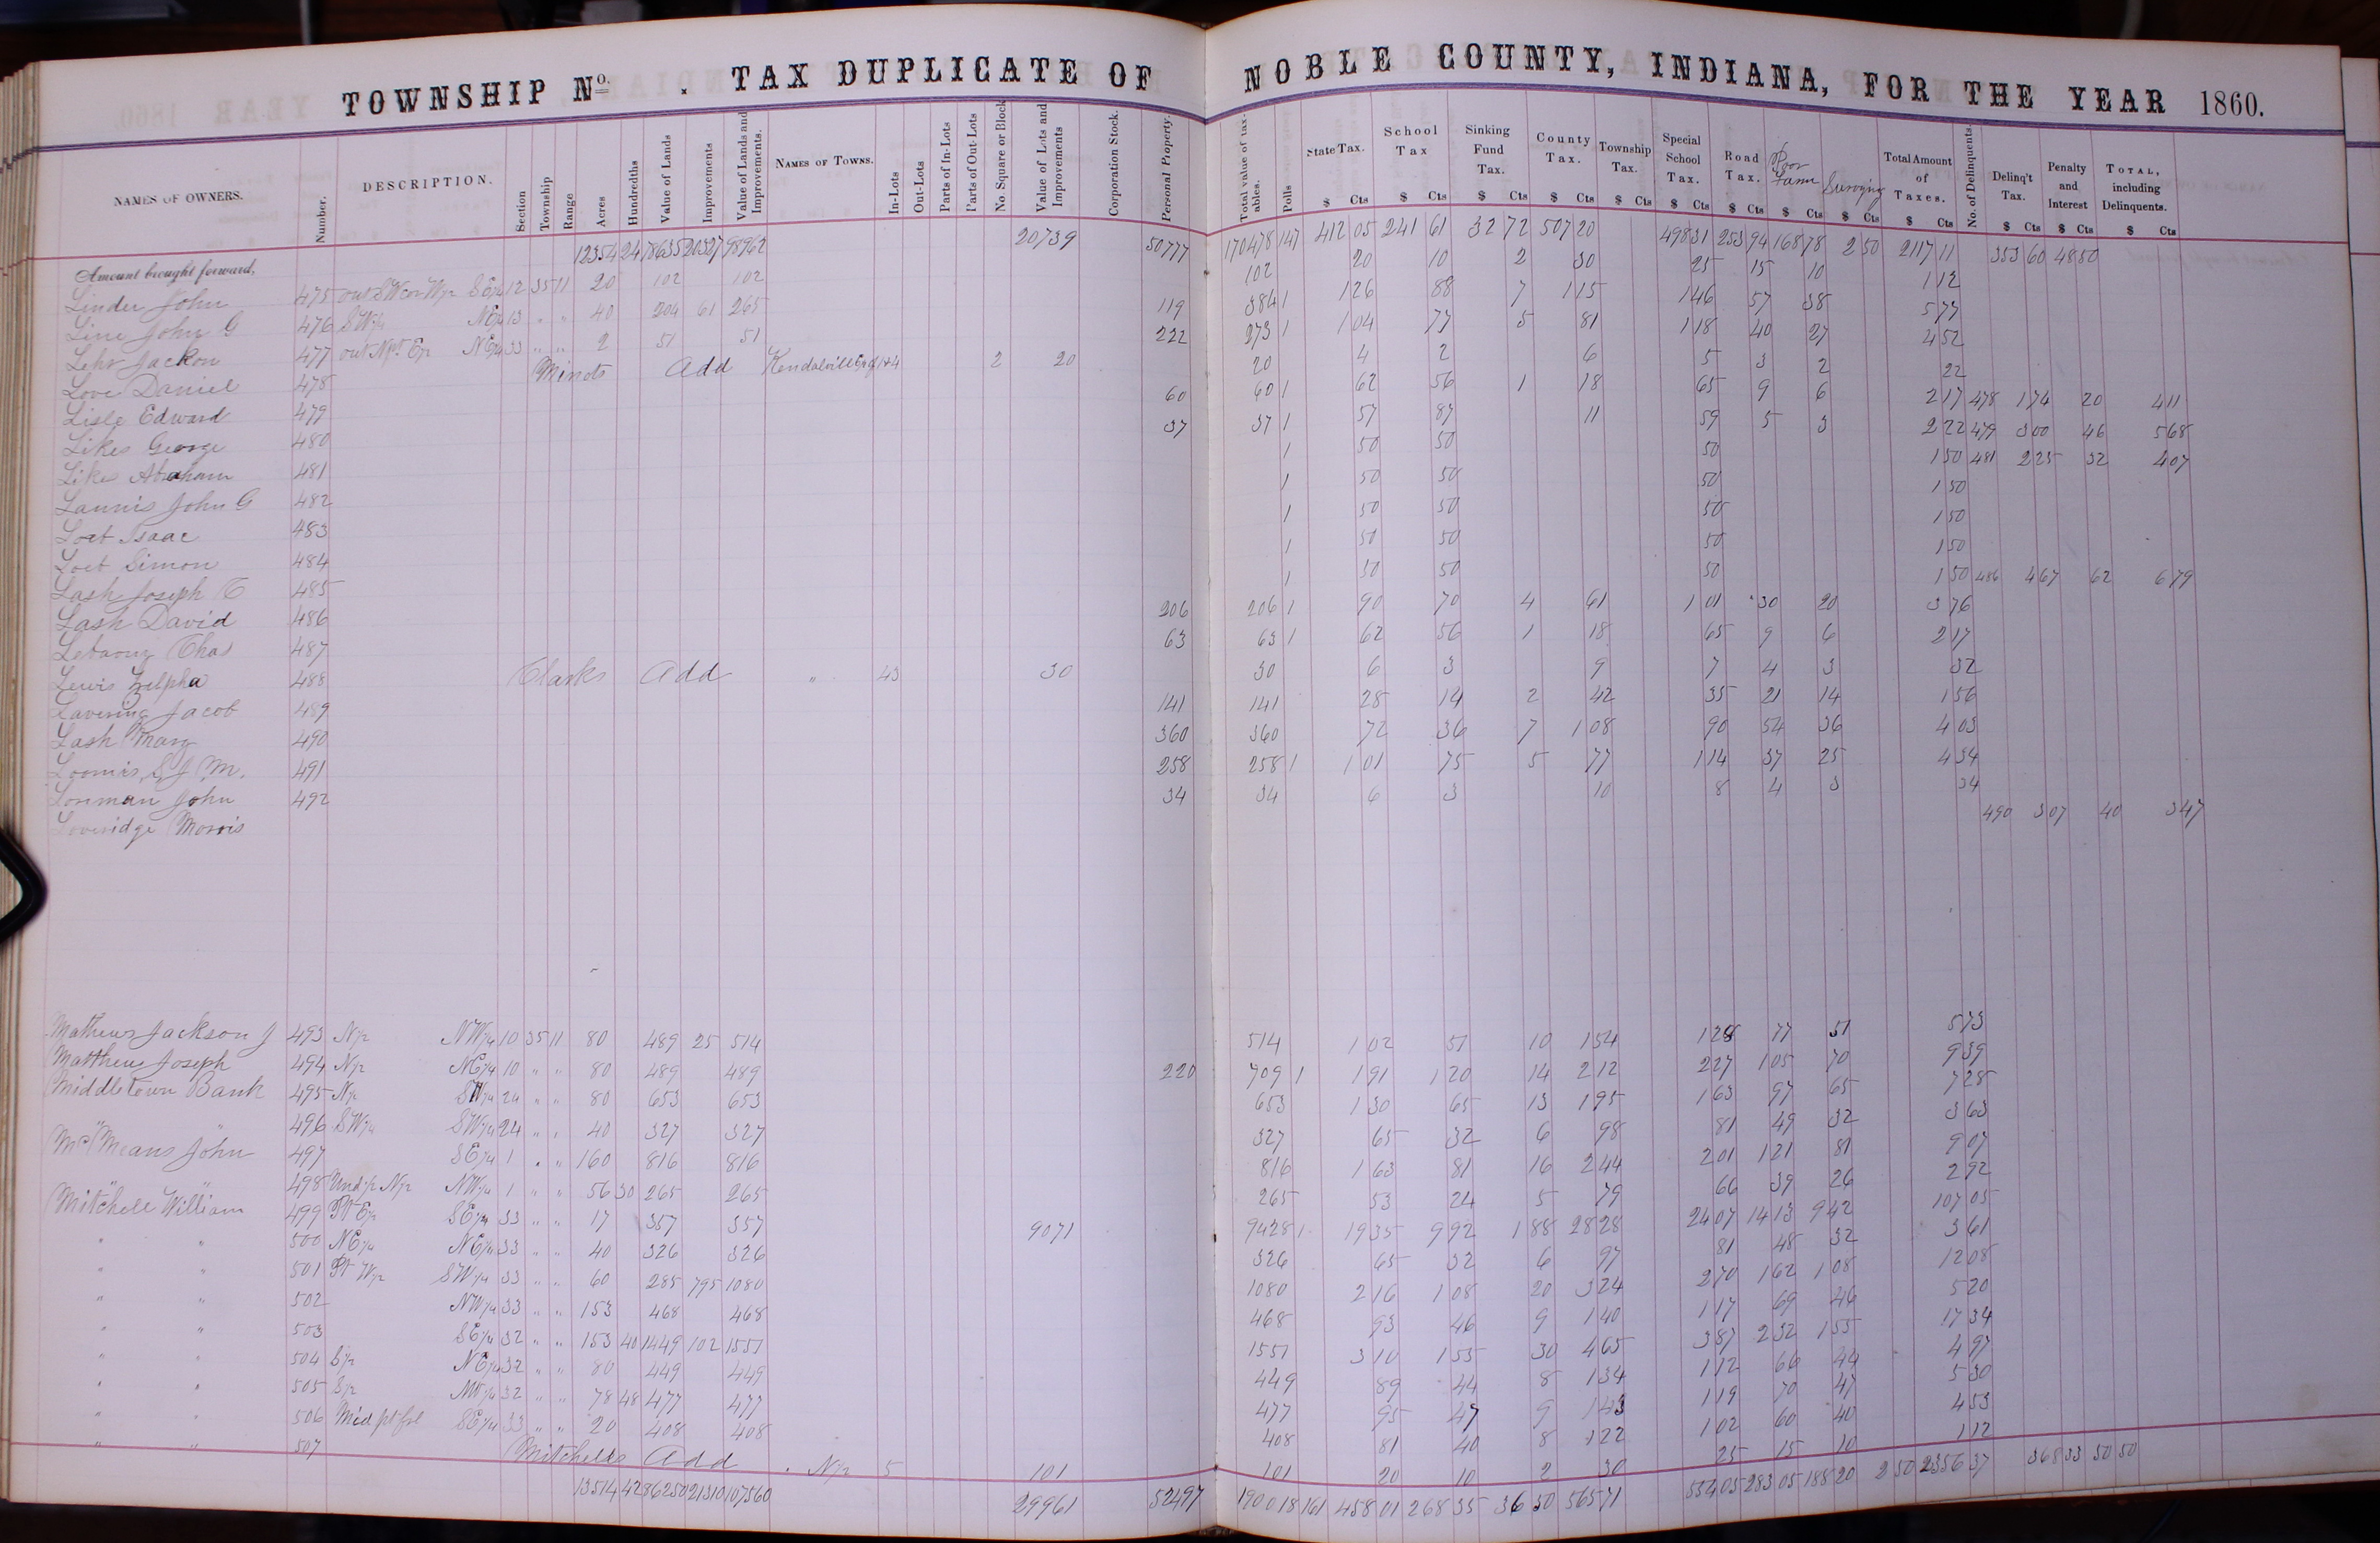 TOWNSHIP No. . TAX DUPLICATE OF NOBLE COUNTY, INDIANA, FOR THE YEAR 1860.
NAMES OF OWNERS. Number. DESCRIPTION. Section Township Range Acres Hundredths Value of Lands Improvements Value of Lands and Improvements. NAMES OF TOWNS. In-Lots Out-Lots Parts of In-Lots Parts of Out-Lots No. Square or Block Value of Lots and Improvements Corporation Stock. Personal Property. Total value of taxables. Polls State Tax. School Tax Sinking Fund Tax. County Tax. Township Tax. Special School Tax. Road Tax. Poor Farm Surveying Total Amount of Taxes. No. of Delinquents. Delinq't Tax. Penalty and Interest TOTAL, including Delinquents.
$ Cts $ Cts $ Cts $ Cts $ Cts $ Cts $ Cts $ Cts $ Cts $ Cts $ Cts $ Cts $ Cts
Amount brought forward, 12354 24 78635 20327 98962 20739 50777 170478 147 412 05 241 61 32 72 507 20 498 31 253 94 168 78 2 50 2117 11 353 60 48 50
Linder John 475 out SW cor W½ SE¼ 12 35 11 20 102 102 102 20 10 2 30 25 15 10 1 12
Line John G 476 SW¼ NE¼ 13 " " 40 204 61 265 119 384 1 1 26 88 7 1 15 1 46 57 38 5 77
Lehr Jackon 477 out N pt E½ NE¼ 33 " " 2 51 51 222 273 1 1 04 77 5 81 1 18 40 27 4 52
Love Daniel 478 Minots Add Kendalville 2 20 20 4 2 6 5 3 2 22
Lisle Edward 479 60 60 1 62 56 1 18 65 9 6 2 17 478 1 74 20 4 11
Likes George 480 37 37 1 57 87 11 59 5 3 2 22 479 3 00 46 5 68
Likes Abraham 481 1 50 50 50 1 50 481 2 25 32 4 07
Launis John G 482 1 50 50 50 1 50
Loet Isaac 483 1 50 50 50 1 50
Loet Simon 484 1 50 50 50 1 50
Lash Joseph T 485 1 50 50 50 1 50 486 4 67 62 6 79
Lash David 486 206 206 1 90 70 4 61 1 01 30 20 3 76
Chas 487 63 63 1 62 56 1 18 65 9 6 2 17
Lewis Zelpha 488 Clarks Add " 43 30 30 6 3 9 7 4 3 32
Lavering Jacob 489 141 141 28 14 2 42 35 21 14 1 56
Lash Mary 490 360 360 72 36 7 1 08 90 54 36 4 03
Loomis S J M. 491 258 258 1 1 01 75 5 77 1 14 37 25 4 34
Lonman John 492 34 34 6 3 10 8 4 3 34
Loveridge Morris 490 3 07 40 3 47
Mathews Jackson J 493 N½ NW¼ 10 35 11 80 489 25 514 514 1 02 51 10 1 54 1 28 77 51 5 73
Matthew Joseph 494 N½ NE¼ 10 " " 80 489 489 220 709 1 1 91 1 20 14 2 12 2 27 1 05 70 9 39
Middletown Bank 495 N½ SW¼ 24 " " 80 653 653 653 1 30 65 13 1 95 1 63 97 65 7 28
" " 496 SW¼ SW¼ 24 " " 40 327 327 327 65 32 6 98 81 49 32 3 63
McMeans John 497 SE¼ 1 " " 160 816 816 816 1 63 81 16 2 44 2 01 1 21 81 9 07
" " 498 Und½ N½ NW¼ 1 " " 56 30 265 265 265 53 24 5 79 66 39 26 2 92
Mitchell William 499 Pt E½ SE¼ 33 " " 17 357 357 9071 9428 1 19 35 9 92 1 88 28 28 24 07 14 13 9 42 107 05
" " 500 NE¼ NE¼ 33 " " 40 326 326 326 65 32 6 97 81 48 32 3 61
" " 501 Pt W½ SW¼ 33 " " 60 285 795 1080 1080 2 16 1 08 20 3 24 2 70 1 62 1 08 12 08
" " 502 NW¼ 33 " " 153 468 468 468 93 46 9 1 40 1 17 69 46 5 20
" " 503 SE¼ 32 " " 153 40 1449 102 1551 1551 3 10 1 55 30 4 65 3 87 2 32 1 55 17 34
" " 504 S½ NE¼ 32 " " 80 449 449 449 89 44 8 1 34 1 12 66 44 4 97
" " 505 S½ NW¼ 32 " " 78 48 477 477 477 95 47 9 1 43 1 19 70 47 5 30
" " 506 Mid pt SE¼ 33 " " 20 408 408 408 81 40 8 1 22 1 02 60 40 4 53
" " 507 Mitchells Add N½ 5 101 101 20 10 2 30 25 15 10 1 12
13514 42 86250 21310 107560 29961 52497 190018 161 458 01 268 35 36 50 565 71 554 05 283 05 188 20 2 50 2356 37 368 33 50 50